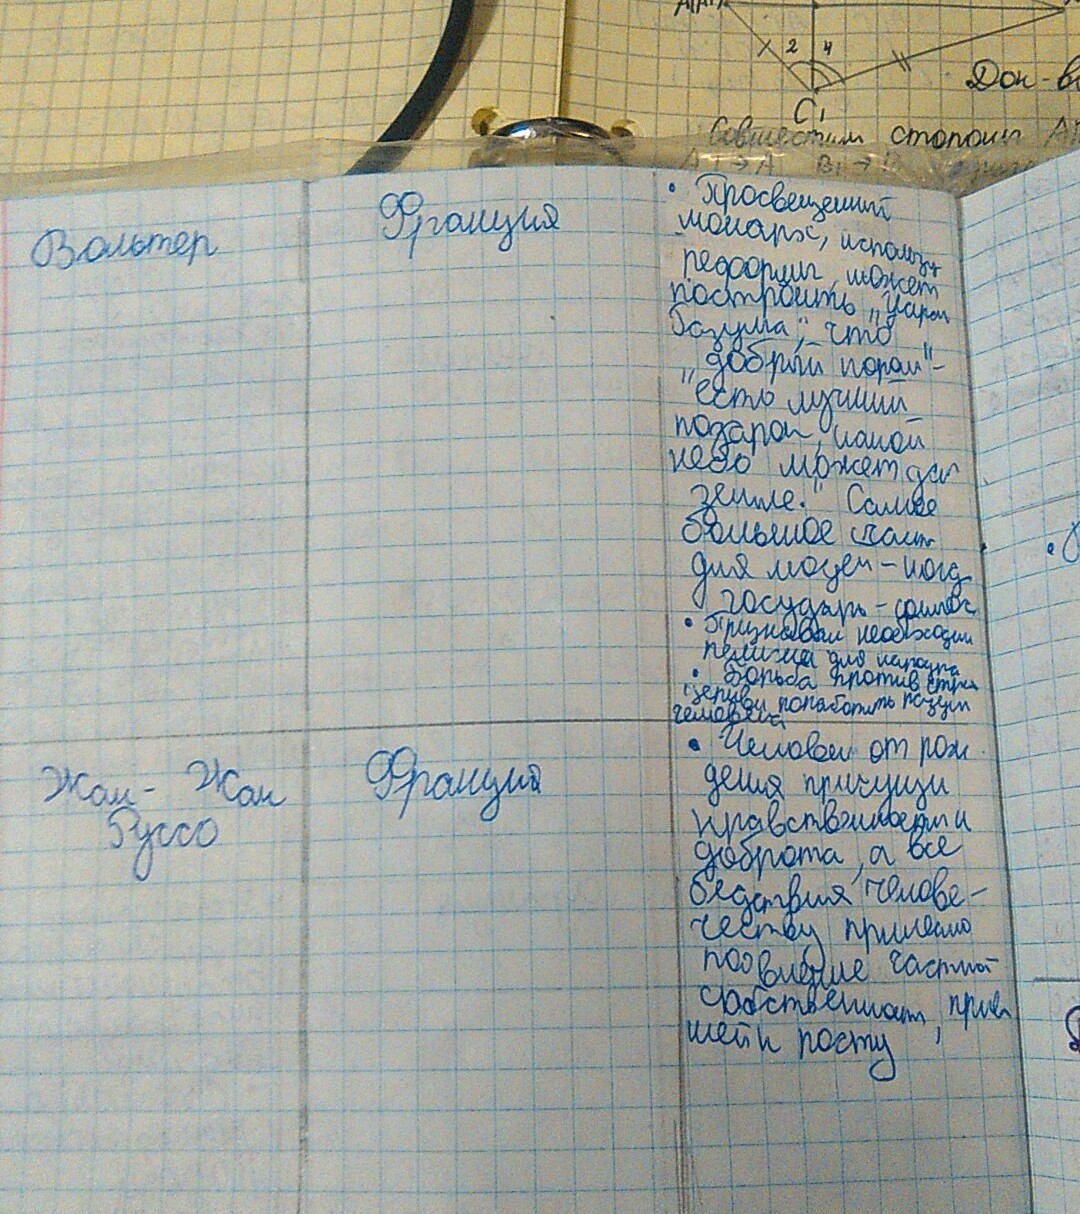 А(А1)
2 4
С1
Док-в
Совместим стороны А
А1→А В1→
Вольтер
Франция
• Просвещенный
монарх, использу
реформы, может
построить „Царст
Разума", что
„добрый король" -
„есть лучший
подарок, какой
небо может дат
земле." Самое
большое счаст
для людей - когд
государь - филосо
• Признавал необходим
религии для народа
• Борьба против стрем
церкви поработить разум
человека
Жан- Жак
Руссо
Франция
• Человеку от рож
дения присущи
нравственность и
доброта, а все
бедствия челове-
честву принесло
появление частной
собственност, привед
шей к росту